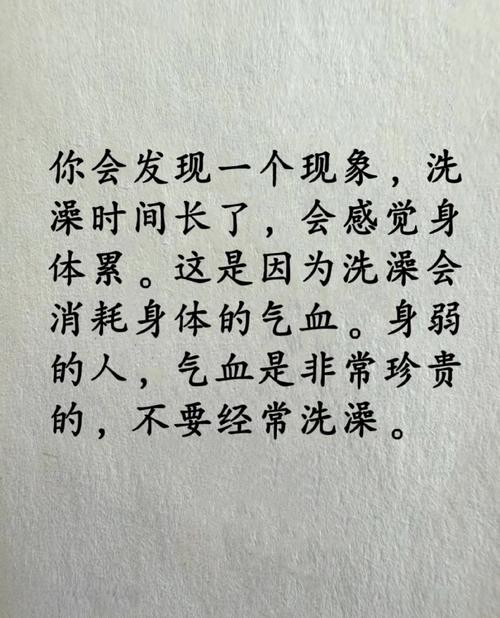 你会发现一个现象，洗
澡时间长了，会感觉身
体累。这是因为洗澡会
消耗身体的气血。身弱
的人，气血是非常珍贵
的，不要经常洗澡。